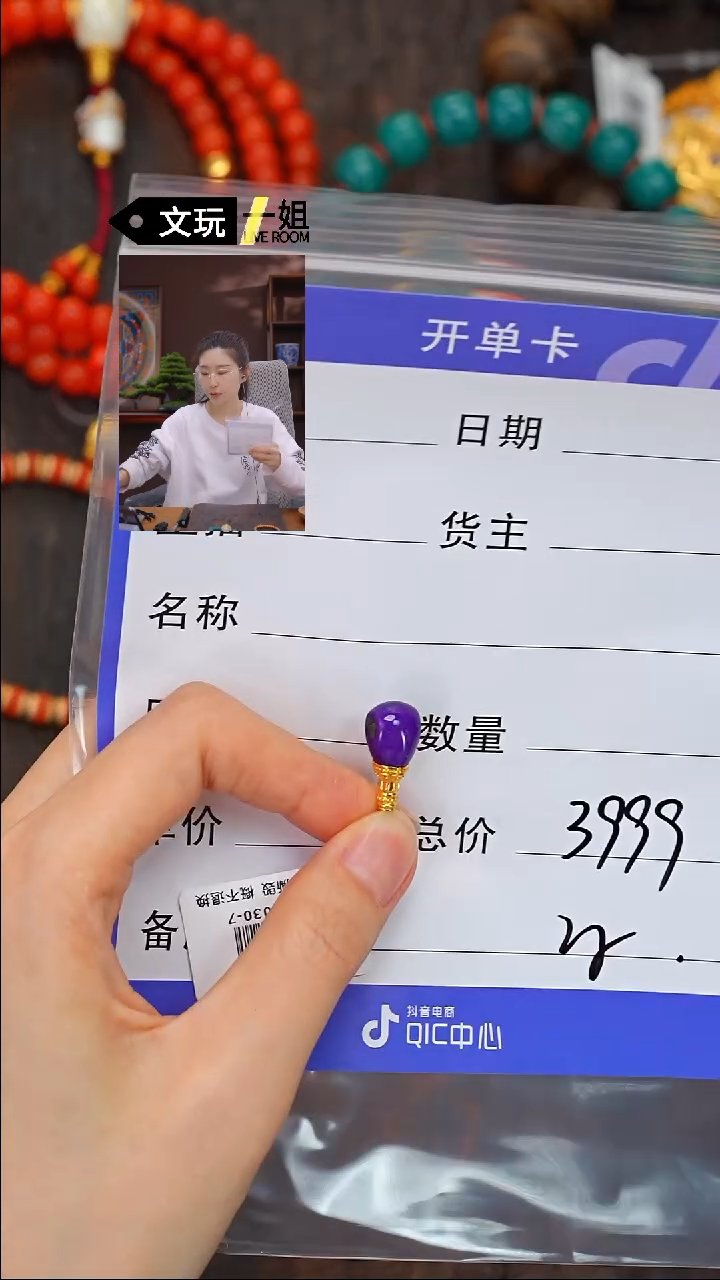 文玩一姐
LIVE ROOM
开单卡
日期
货主
名称
数量
单价 总价 3999
备
概不退换
030-7
抖音电商
QIC中心